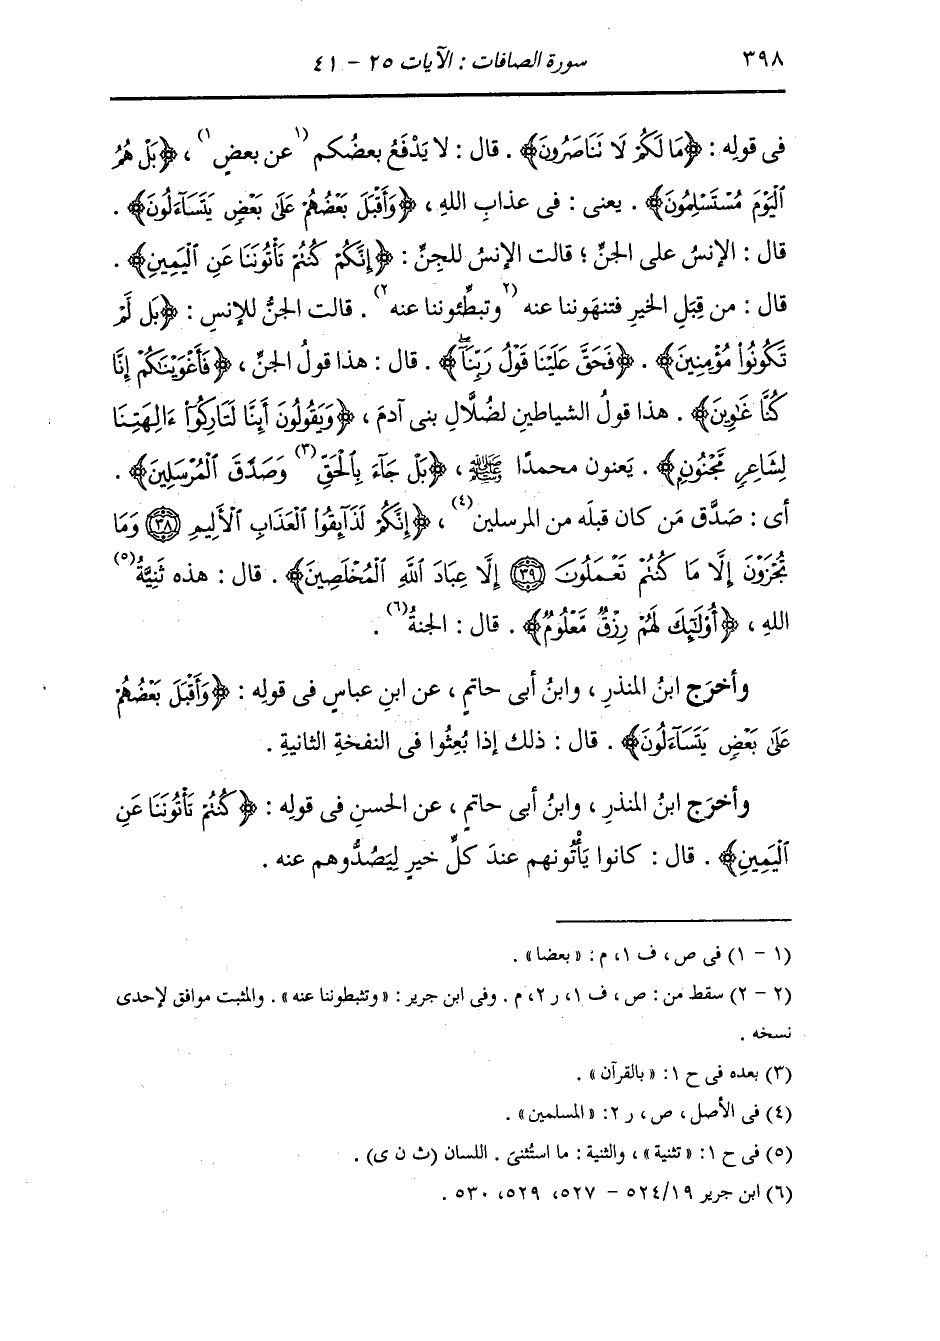 ٣٩٨
سورة الصافات : الآيات ٢٥ - ٤١
فى قولِه : ﴿مَا لَكُمْ لَا تَنَاصَرُونَ﴾ . قال : لا يَدْفَعُ بعضُكم (١عن بعضٍ١) ، ﴿بَلْ هُمُ
ٱلْيَوْمَ مُسْتَسْلِمُونَ﴾ . يعنى : فى عذابِ اللهِ ، ﴿وَأَقْبَلَ بَعْضُهُمْ عَلَىٰ بَعْضٍ يَتَسَآءَلُونَ﴾ .
قال : الإنسُ على الجنِّ ؛ قالت الإنسُ للجِنِّ : ﴿إِنَّكُمْ كُنتُمْ تَأْتُونَنَا عَنِ ٱلْيَمِينِ﴾ .
قال : من قِبَلِ الخيرِ فتنهَوننا عنه (٢وتبطِّئوننا عنه٢) . قالت الجنُّ للإنسِ : ﴿بَل لَّمْ
تَكُونُوا۟ مُؤْمِنِينَ﴾ . ﴿فَحَقَّ عَلَيْنَا قَوْلُ رَبِّنَآ ۖ﴾ . قال : هذا قولُ الجنِّ ، ﴿فَأَغْوَيْنَـٰكُمْ إِنَّا
كُنَّا غَـٰوِينَ﴾ . هذا قولُ الشياطينِ لضُلَّالِ بنى آدمَ ، ﴿وَيَقُولُونَ أَئِنَّا لَتَارِكُوٓا۟ ءَالِهَتِنَا
لِشَاعِرٍ مَّجْنُونٍ﴾ . يَعنون محمدًا ﷺ ، ﴿بَلْ جَآءَ بِٱلْحَقِّ(٣) وَصَدَّقَ ٱلْمُرْسَلِينَ﴾ .
أى : صَدَّق مَن كان قبلَه من المرسلين(٤) ، ﴿إِنَّكُمْ لَذَآئِقُوا۟ ٱلْعَذَابِ ٱلْأَلِيمِ ٣٨ وَمَا
تُجْزَوْنَ إِلَّا مَا كُنتُمْ تَعْمَلُونَ ٣٩ إِلَّا عِبَادَ ٱللَّهِ ٱلْمُخْلَصِينَ﴾ . قال : هذه ثَنِيَّةُ(٥)
اللهِ ، ﴿أُو۟لَـٰٓئِكَ لَهُمْ رِزْقٌ مَّعْلُومٌ﴾ . قال : الجنةُ(٦) .
وأخرَج ابنُ المنذرِ ، وابنُ أبى حاتمٍ ، عن ابنِ عباسٍ فى قولِه : ﴿وَأَقْبَلَ بَعْضُهُمْ
عَلَىٰ بَعْضٍ يَتَسَآءَلُونَ﴾ . قال : ذلك إذا بُعِثُوا فى النفخةِ الثانيةِ .
وأخرَج ابنُ المنذرِ ، وابنُ أبى حاتمٍ ، عن الحسنِ فى قولِه : ﴿كُنتُمْ تَأْتُونَنَا عَنِ
ٱلْيَمِينِ﴾ . قال : كانوا يَأْتُونهم عندَ كلِّ خيرٍ لِيَصُدُّوهم عنه .
(١ - ١) فى ص ، ف ١ ، م : « بعضا » .
(٢ - ٢) سقط من : ص ، ف ١ ، ر ٢ ، م . وفى ابن جرير : « وتثبطوننا عنه » . والمثبت موافق لإحدى
نسخه .
(٣) بعده فى ح ١ : « بالقرآن » .
(٤) فى الأصل ، ص ، ر ٢ : « المسلمين » .
(٥) فى ح ١ : « تثنية » ، والثنية : ما استُثنىَ . اللسان (ث ن ى) .
(٦) ابن جرير ١٩/ ٥٢٤ - ٥٢٧ ، ٥٢٩ ، ٥٣٠ .